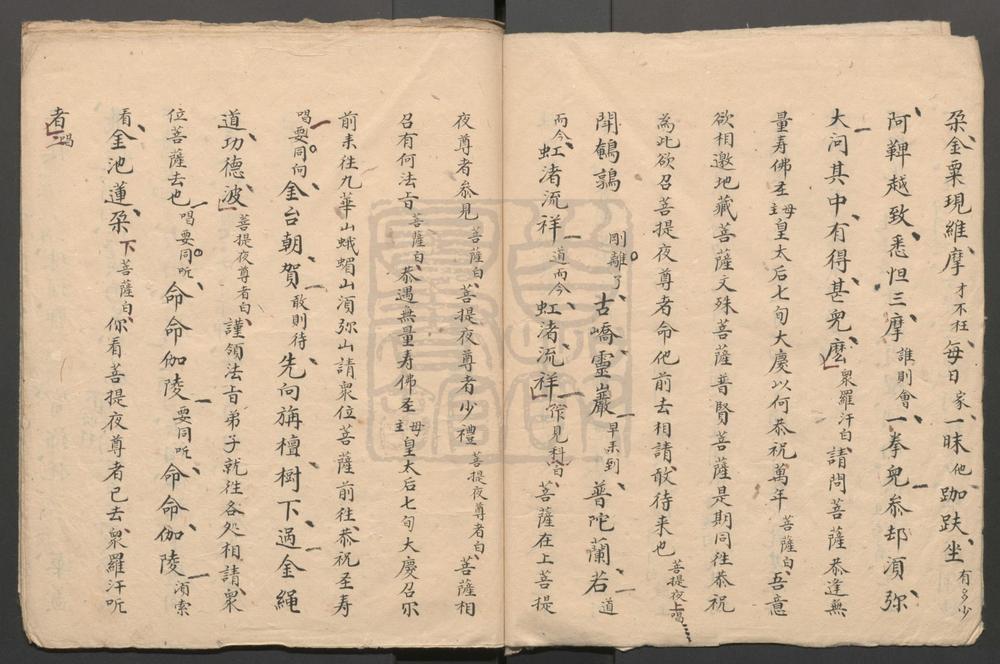 朶金粟現維摩才不枉每日家一昧他跏趺坐有多少
阿鞞越致悉怛三摩誰則會一拳兒叅却湏弥
大河其中有得甚兒麽衆羅汗白請問菩薩恭逢無
量壽佛圣母主皇太后七旬大慶以何恭祝萬年菩薩白吾意
欲相邀地藏菩薩文殊菩薩普賢菩薩是期同徃恭祝
為此欲召菩提夜尊者命他前去相請敢待来也菩提夜上唱
聞鵪鶉剛離了古嶠靈巖早来到普陀蘭若道
而今虹渚流祥道而今虹渚流祥作見科白菩薩在上菩提
夜尊者叅見菩薩白菩提夜尊者少禮菩提夜尊者白菩薩相
召有何法㫖菩薩白恭遇無量壽佛圣母主皇太后七旬大慶召尔
前来徃九華山蛾嵋山湏弥山請衆位菩薩前徃恭祝圣壽
唱要同向金台朝賀敢則待先向旃檀樹下過金繩
道功德波菩提夜尊者白謹領法㫖弟子就徃各处相請衆
位菩薩去也唱要同听命命伽陵要同听命命伽陵湏索
看金池蓮朶下菩薩白你看菩提夜尊者已去衆羅汗听
者唱